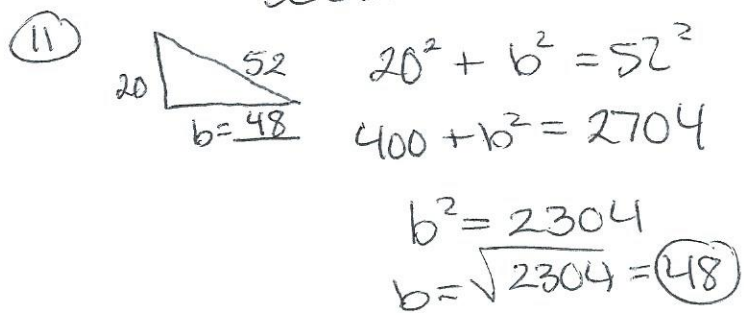 11
20
52
b = 48
20² + b² = 52²
400 + b² = 2704
b² = 2304
b = √2304 = 48